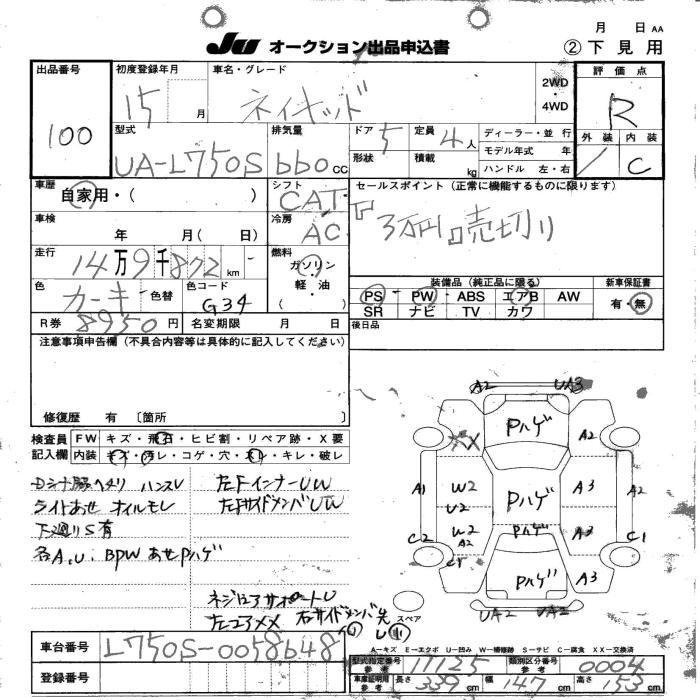 月 日 AA
JU オークション出品申込書 ②下見用
出品番号 初度登録年月 車名・グレード 2WD・4WD 評価点
100 15 月 ネイキッド R
型式 排気量 ドア 5 定員 4人 ディーラー・並行 外装 内装
UA-L750S 660 CC 形状 積載 kg モデル年式 年 / C
ハンドル 左・右
車歴 シフト セールスポイント(正常に機能するものに限ります)
自家用・( ) CAT
車検 冷房 『3万円売切り
年 月( 日) AC
走行 燃料
14万9千872 km ガソリン・軽油・( )
色 色替 色コード 装備品(純正品に限る) 新車保証書
カーキ G34 PS PW ABS エアB AW 有・無
SR ナビ TV カワ
R券 8950円 名変期限 月 日 後日品
注意事項申告欄(不具合内容等は具体的に記入してください)
修復歴 有 〔箇所 〕
検査員記入欄 FW キズ・飛石・ヒビ割・リペア跡・X要
内装 キズ・汚レ・コゲ・穴・スレ・キレ・破レ
ハンスレ 左FインナーUW
ライトあせ オイルモレ 左FサイドメンバUW
下廻りS有
各A.U. BPWあせPハゲ
ネジ ロアサポートU
左コアXX 右サイドメンバ先
A2 UA3
XX Pハゲ A2
A1 W2 U2 Pハゲ A3 A2
C2 W2 A2 Pハゲ A3 C1
Pハゲ A3
UA2 UA2
スペア
A-キズ E-エクボ U-凹み W-補修跡 S-サビ C-腐食 XX-交換済
車台番号 L750S-0058648
型式指定番号 参考 17125 類別区分番号 参考 0004
登録番号 車庫証明用 参考 長さ 339cm 幅 147cm 高さ 153cm